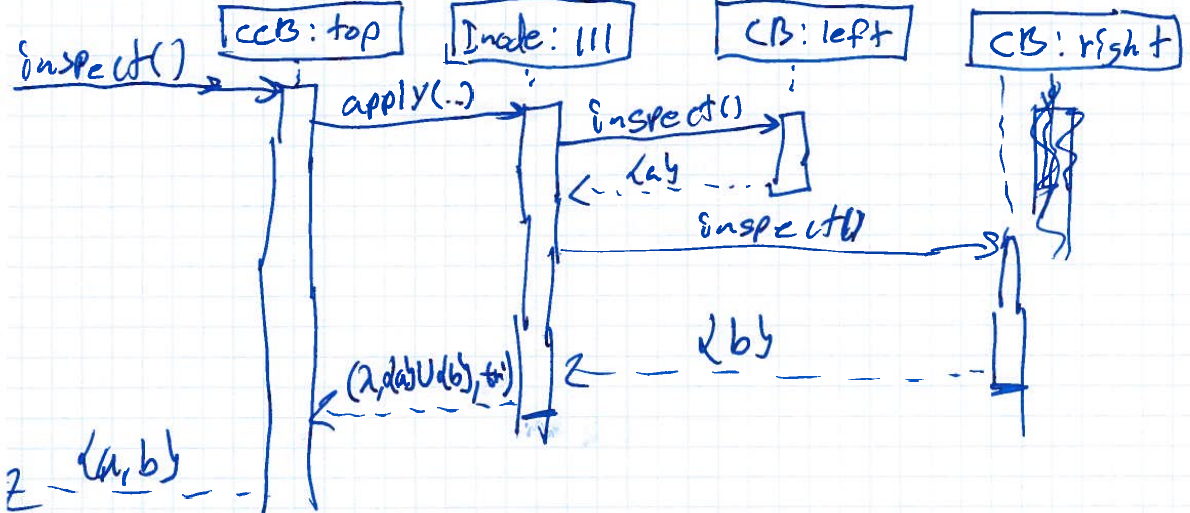 ccB: top
Inode: 111
CB: left
CB: right
inspect()
apply(..)
inspect()
{a}
inspect()
{b}
{a, b}